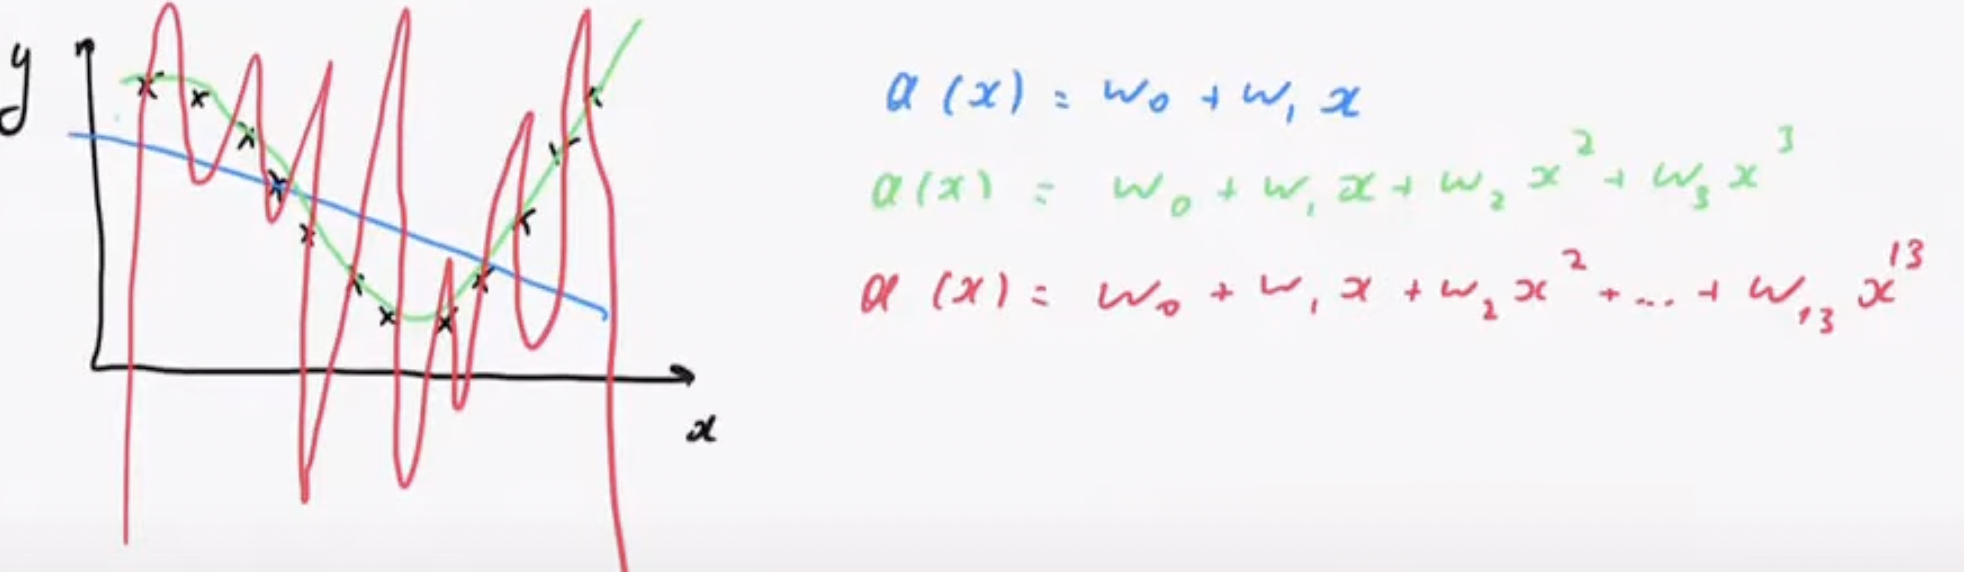 y
x
a(x) = w₀ + w₁ x
a(x) = w₀ + w₁ x + w₂ x² + w₃ x³
a(x) = w₀ + w₁ x + w₂ x² + ... + w₁₃ x¹³